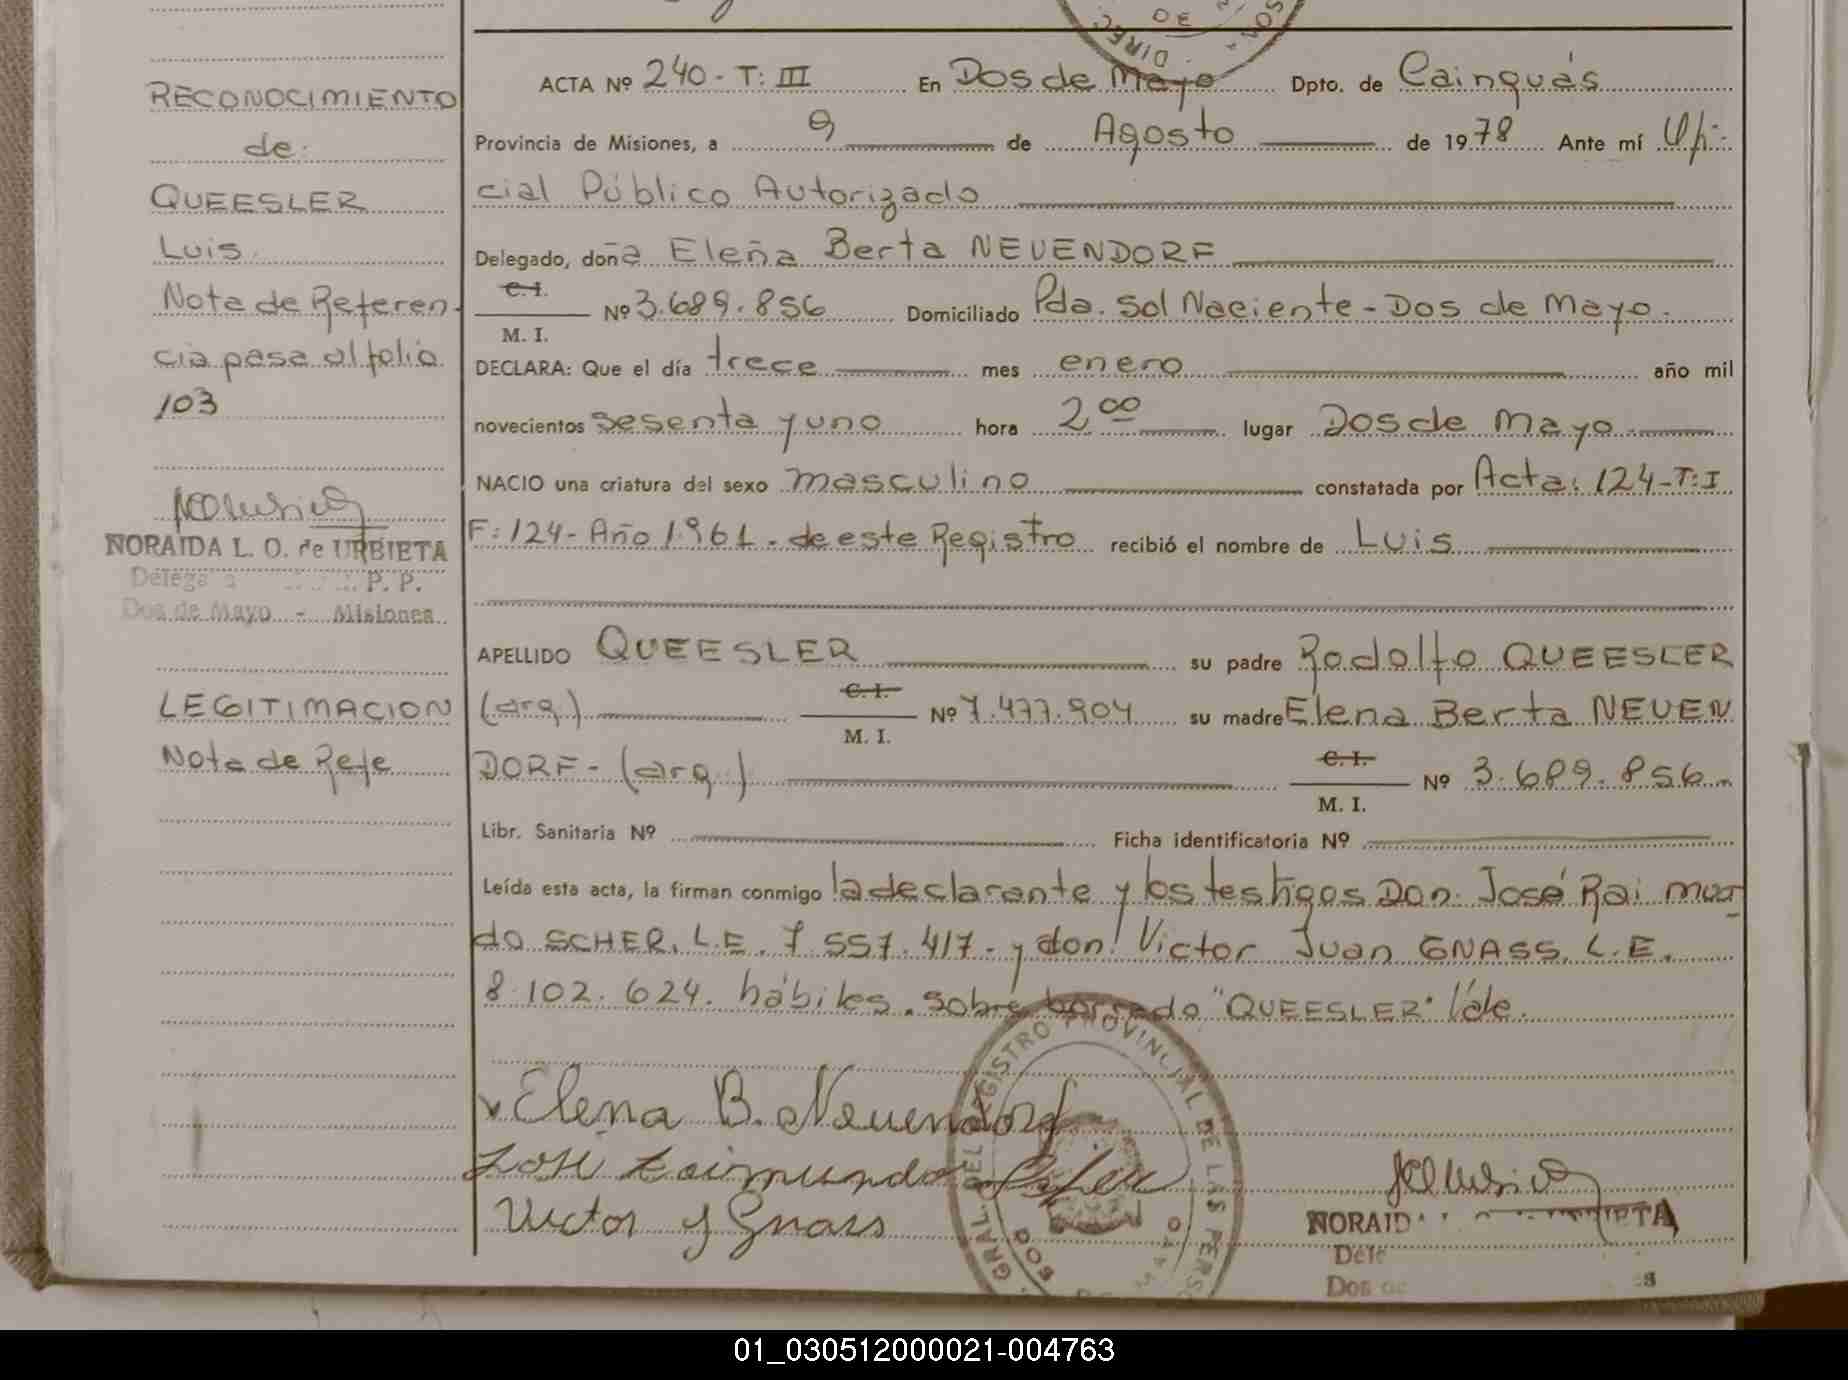 RECONOCIMIENTO
de
QUEESLER
Luis
Nota de Referen-
cia pasa al folio
103
NORAIDA L. O. de URBIETA
Delega P. P.
Dos de Mayo - Misiones
LEGITIMACION
Nota de Refe
ACTA Nº 240 - T: III En Dos de Mayo Dpto. de Cainguás
Provincia de Misiones, a 9 de Agosto de 1978 Ante mí Ofi-
cial Público Autorizado
Delegado, doña Elena Berta NEUENDORF
C. I.
M. I. Nº 3.689.856 Domiciliado Pda. Sol Naciente - Dos de Mayo.
DECLARA: Que el día trece mes enero año mil
novecientos sesenta y uno hora 2 00 lugar Dos de Mayo
NACIO una criatura del sexo masculino constatada por Acta: 124-T:I
F: 124 - Año 1961 - de este Registro recibió el nombre de Luis
APELLIDO QUEESLER su padre Rodolfo QUEESLER
(arg) C. I. M. I. Nº 7.477.904 su madre Elena Berta NEUEN
DORF - (arg.) C. I. M. I. Nº 3.689.856
Libr. Sanitaria Nº Ficha identificatoria Nº
Leída esta acta, la firman conmigo la declarante y los testigos Don: José Rai mun
do SCHER, L.E. 7.557.417 - y don! Victor Juan GNASS, L.E.
8.102.624. hábiles. Sobre borrado "QUEESLER" Vale.
Elena B. Neuendorf
José Raimundo
Victor J Gnass
GRAL. DEL REGISTRO PROVINCIAL DE LAS PERS
NORAID
Dele
Dos de
DIREC
DE
01_030512000021-004763